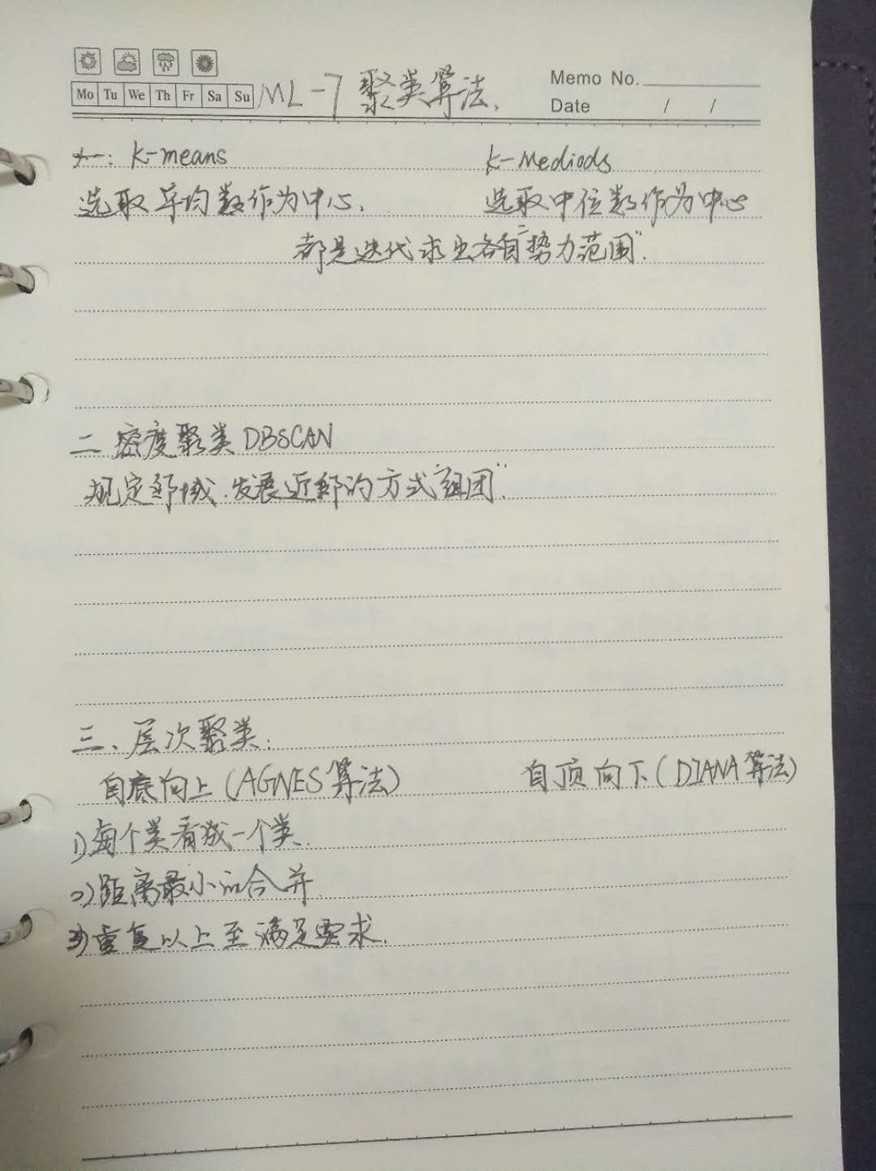 Mo Tu We Th Fr Sa Su ML-7 聚类算法. Memo No.
Date / /
一: K-means K-Mediods
选取平均数作为中心. 选取中位数作为中心
都是迭代求出各自"势力范围".
二 密度聚类 DBSCAN
规定邻域.发展近邻的方式"组团".
三、层次聚类:
自底向上(AGNES算法) 自顶向下(DIANA算法)
1)每个类看成一个类.
2)距离最小的合并.
3)重复以上至满足要求.